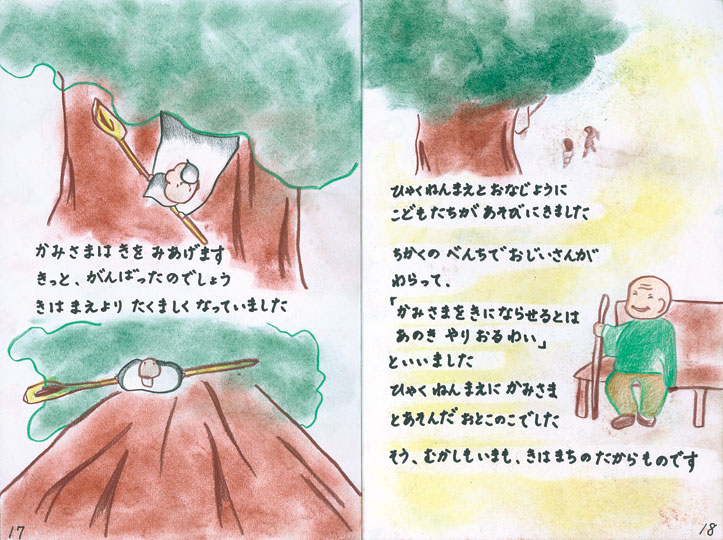 かみさまは きを みあげます
きっと、がんばったのでしょう
きは まえより たくましく なっていました
17
ひゃくねんまえと おなじように
こどもたちが あそびにきました
ちかくの べんちで おじいさんが
わらって、
「かみさまをきにならせるとは
あのき やり おるわい」
といいました
ひゃくねんまえに かみさま
とあそんだ おとこのこでした
そう、むかしもいまも、きは まちの たからものです
18